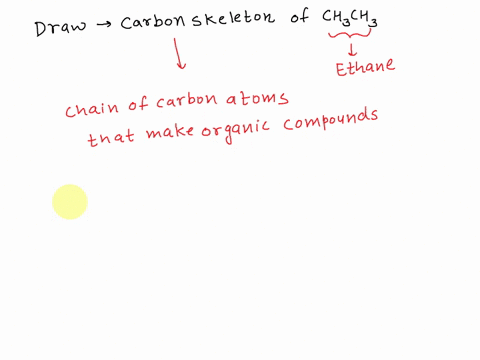 Draw → Carbon skeleton of CH₃CH₃
↓ ↓
Ethane
chain of carbon atoms
that make organic compounds